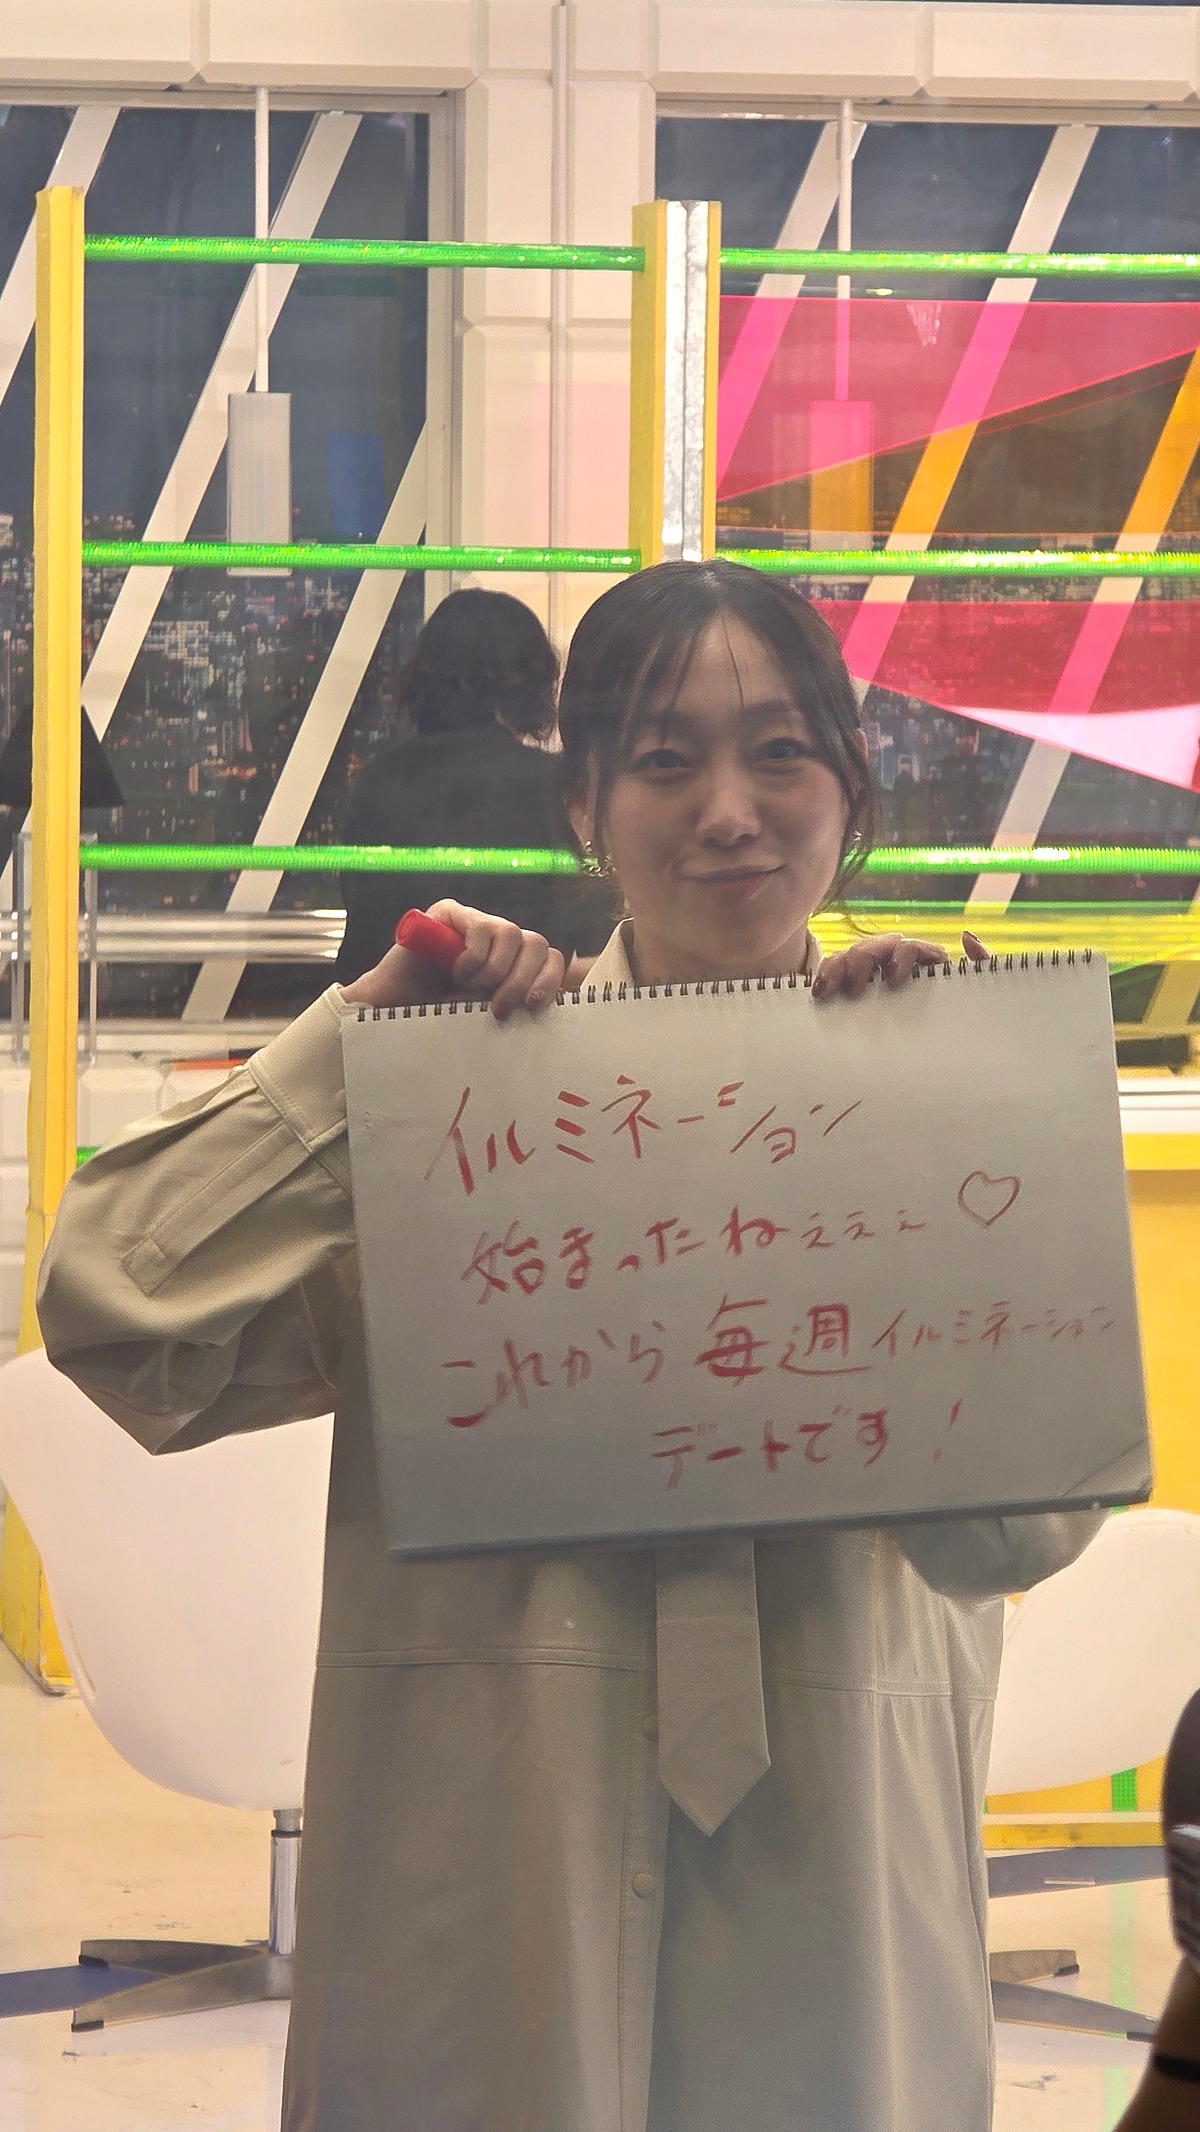 イルミネーション
始まったねぇぇぇ♡
これから毎週イルミネーション
デートです!